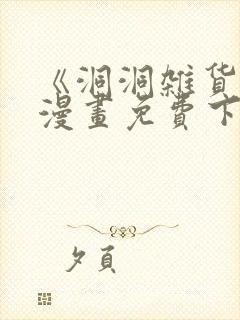 《洞洞雑货
漫畫免費下
夕頁